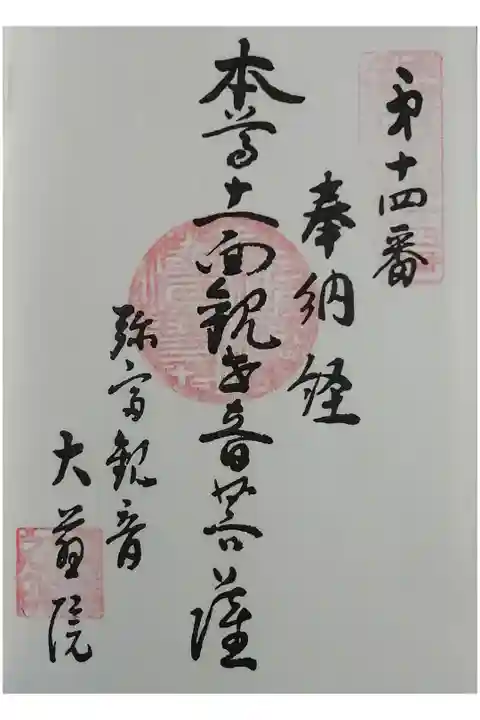 第十四番
奉納経
本尊十一面観世音菩薩
弥富観音
大慈院